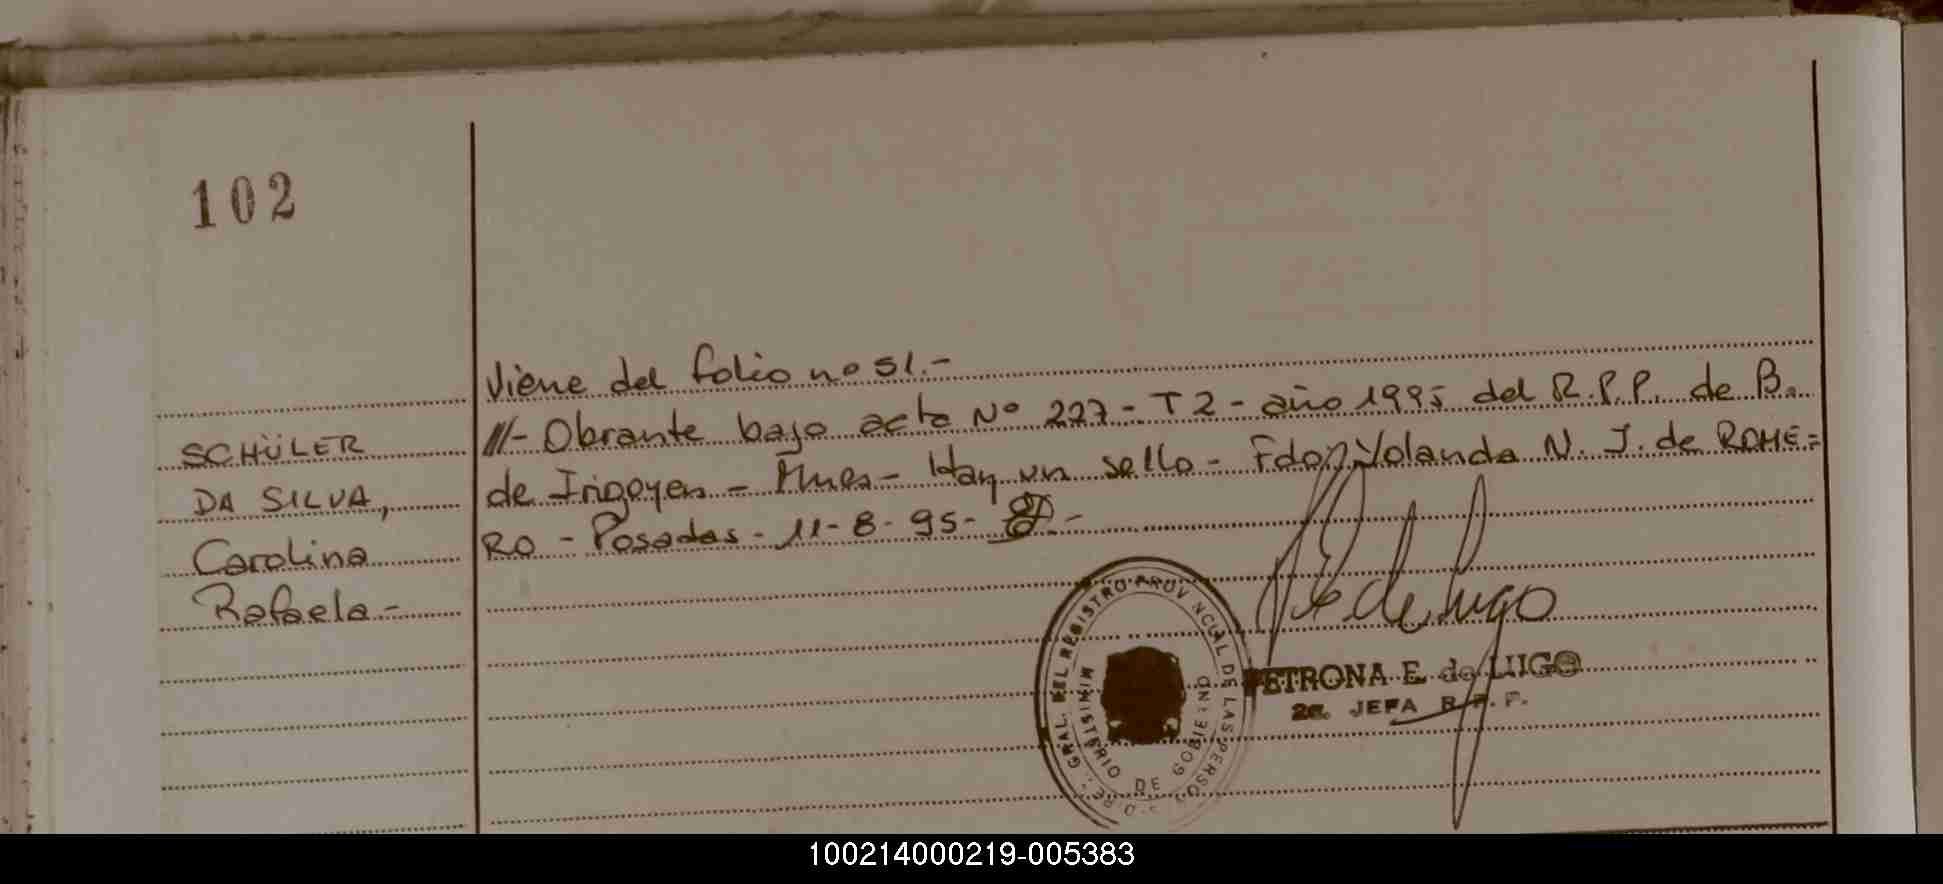 102
SCHÜLER
DA SILVA,
Carolina
Rafaela.-
Viene del folio nº 51.-
///- Obrante bajo acta Nº 227- T 2 - año 1995 del R.P.P. de B.
de Irigoyen - Mnes - Hay un sello - Fdo) Yolanda N. J. de ROME=
RO - Posadas - 11-8-95-
PETRONA E. de LUGO
2a. JEFA R.P.P.
GRAL. DEL REGISTRO PROVINCIAL DE LAS PERSONAS
MINISTERIO DE GOBIERNO
100214000219-005383